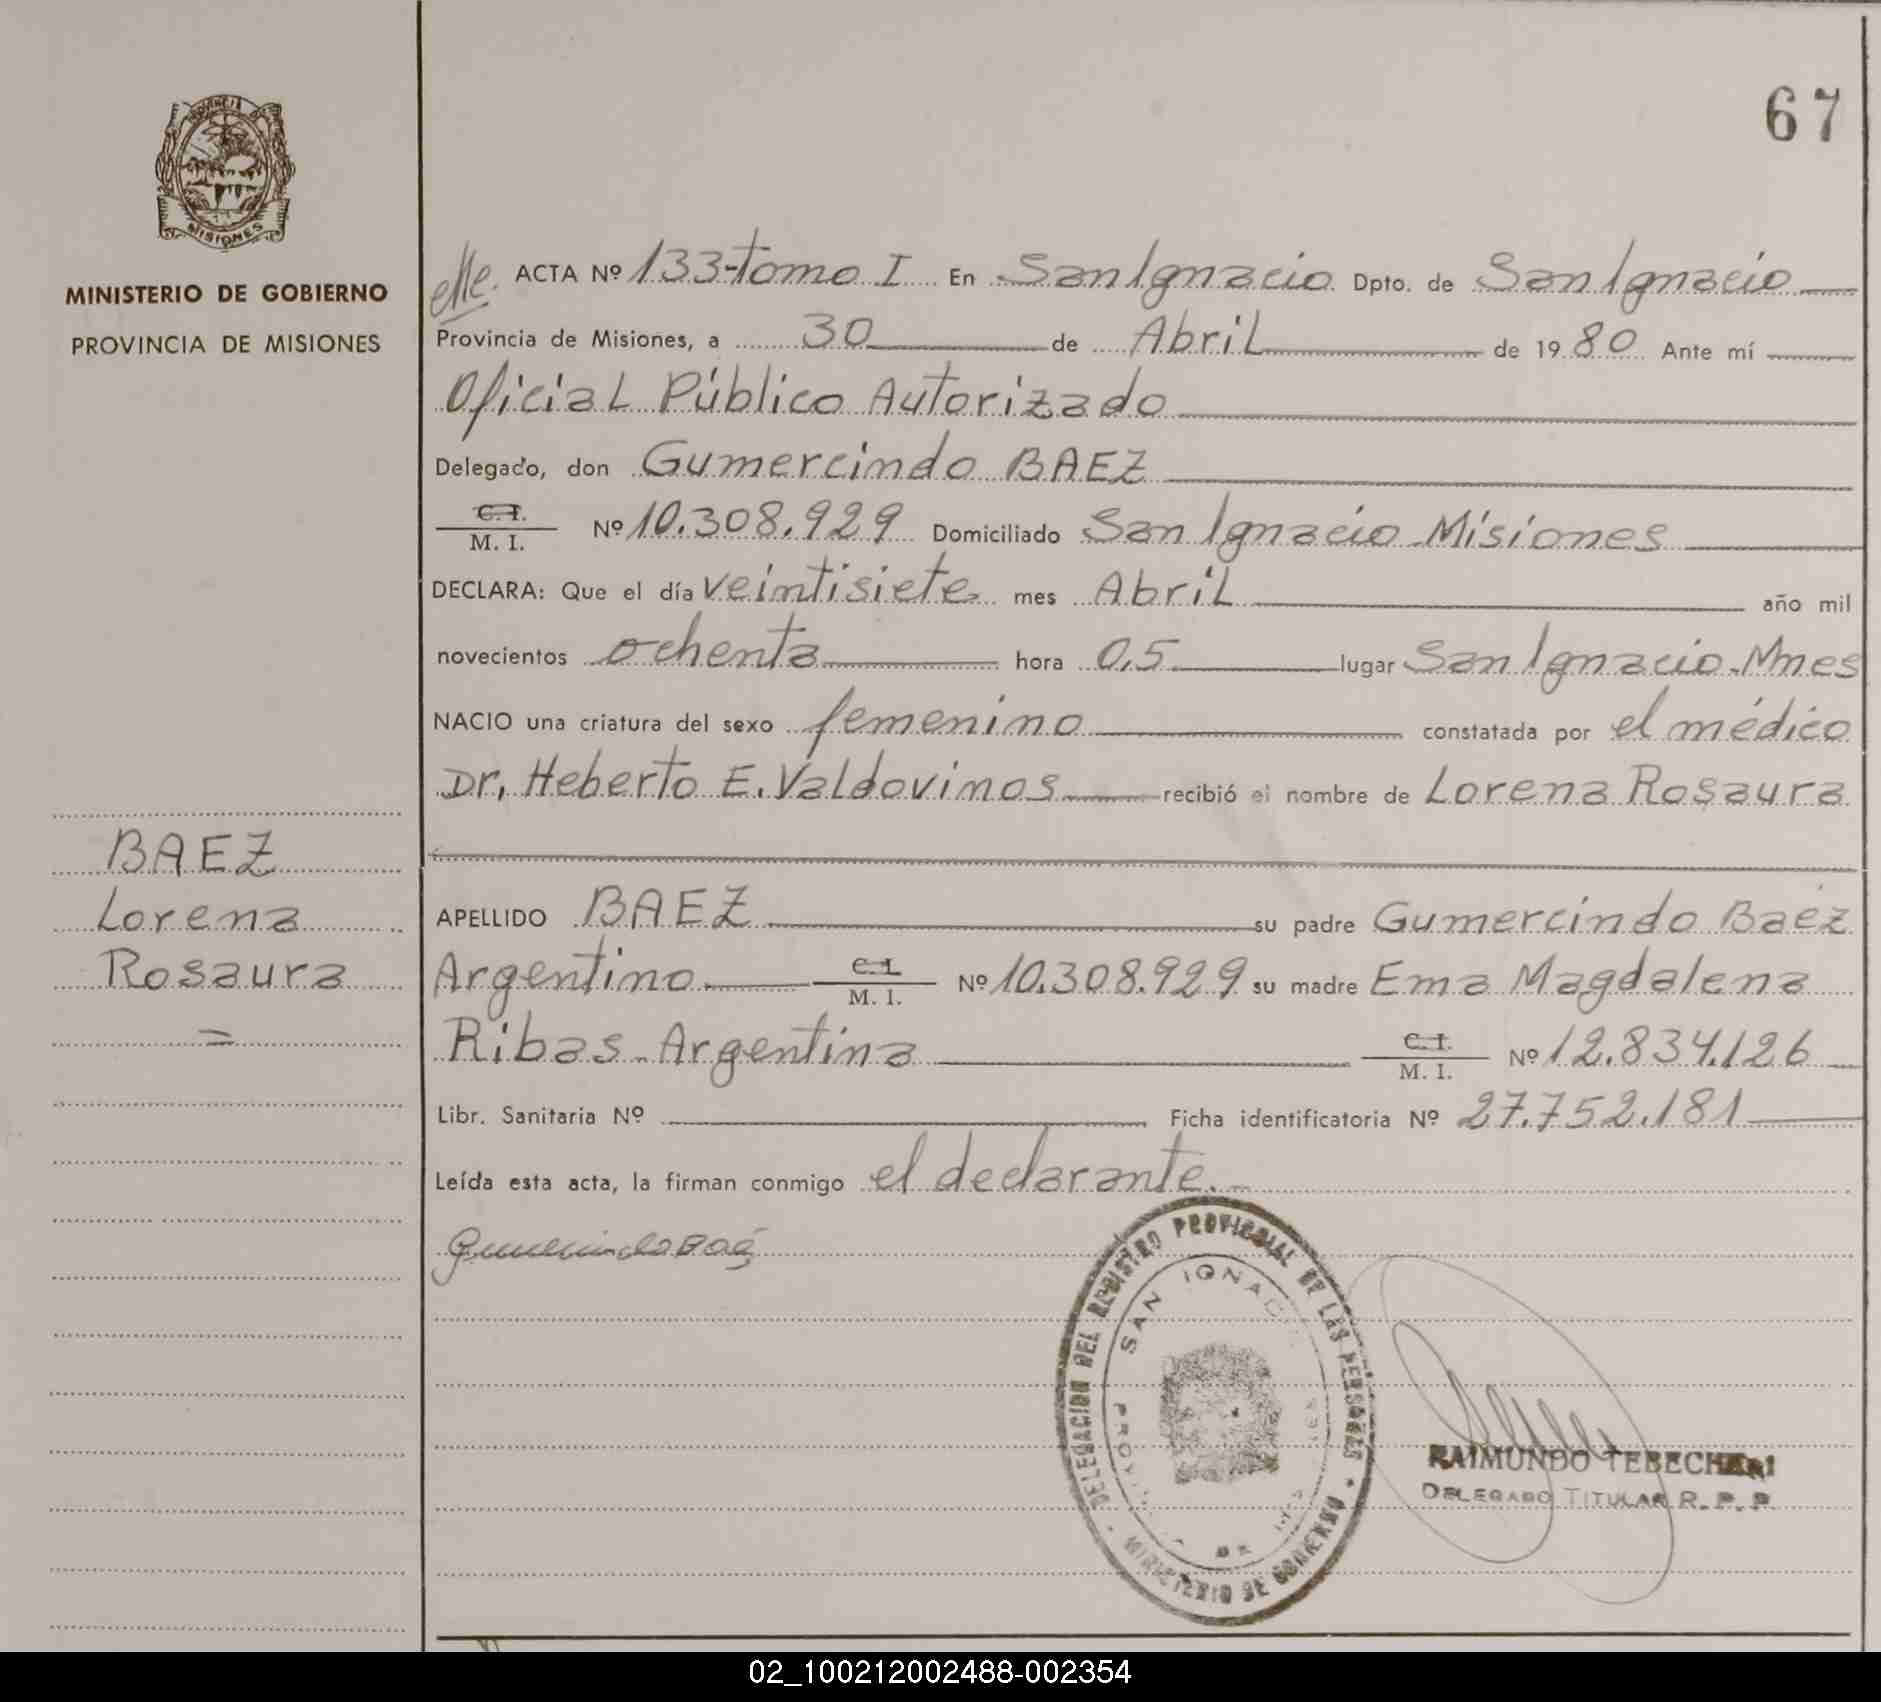 67
PROVINCIA DE
MISIONES
MINISTERIO DE GOBIERNO
PROVINCIA DE MISIONES
BAEZ
Lorena
Rosaura
=
ACTA Nº 133-tomo I En San Ignacio Dpto. de San Ignacio
Provincia de Misiones, a 30 de Abril de 1980 Ante mí
Oficial Público Autorizado
Delegado, don Gumercindo BAEZ
C. I.
M. I. Nº 10.308.929 Domiciliado San Ignacio Misiones
DECLARA: Que el día veintisiete mes Abril año mil
novecientos ochenta hora 0,5 lugar San Ignacio-Mnes
NACIO una criatura del sexo femenino constatada por el médico
Dr. Heberto E. Valdovinos recibió el nombre de Lorena Rosaura
APELLIDO BAEZ su padre Gumercindo Baéz
Argentino C. I. M. I. Nº 10.308.929 su madre Ema Magdalena
Ribas-Argentina C. I. M. I. Nº 12.834.126
Libr. Sanitaria Nº Ficha identificatoria Nº 27.752.181
Leída esta acta, la firman conmigo el declarante.-
Gumercindo Baéz
DELEGACION DEL REGISTRO PROVINCIAL DE LAS PERSONAS
SAN IGNACIO
MINISTERIO DE GOBIERNO
RAIMUNDO TEBECHERI
DELEGADO TITULAR R. P. P.
02_100212002488-002354